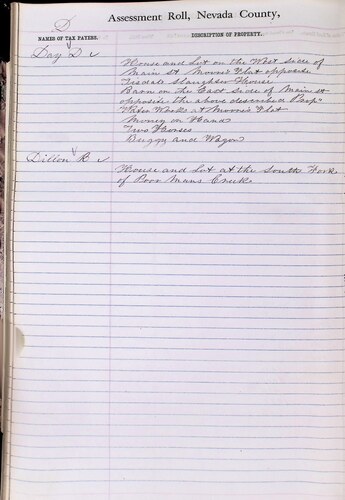 Assessment Roll, Nevada County,
D
NAMES OF TAX PAYERS.
DESCRIPTION OF PROPERTY.
Day D
House and Lot on the West side of
Main st Moores Flat opposite
Tisdale Slaughter House
Barn on the East side of Main st
opposite the above described Prop
Water Works at Moores Flat
Money on Hand
Two Horses
Buggy and Wagon
Dillon B
House and Lot at the South Fork
of Poor Mans Creek